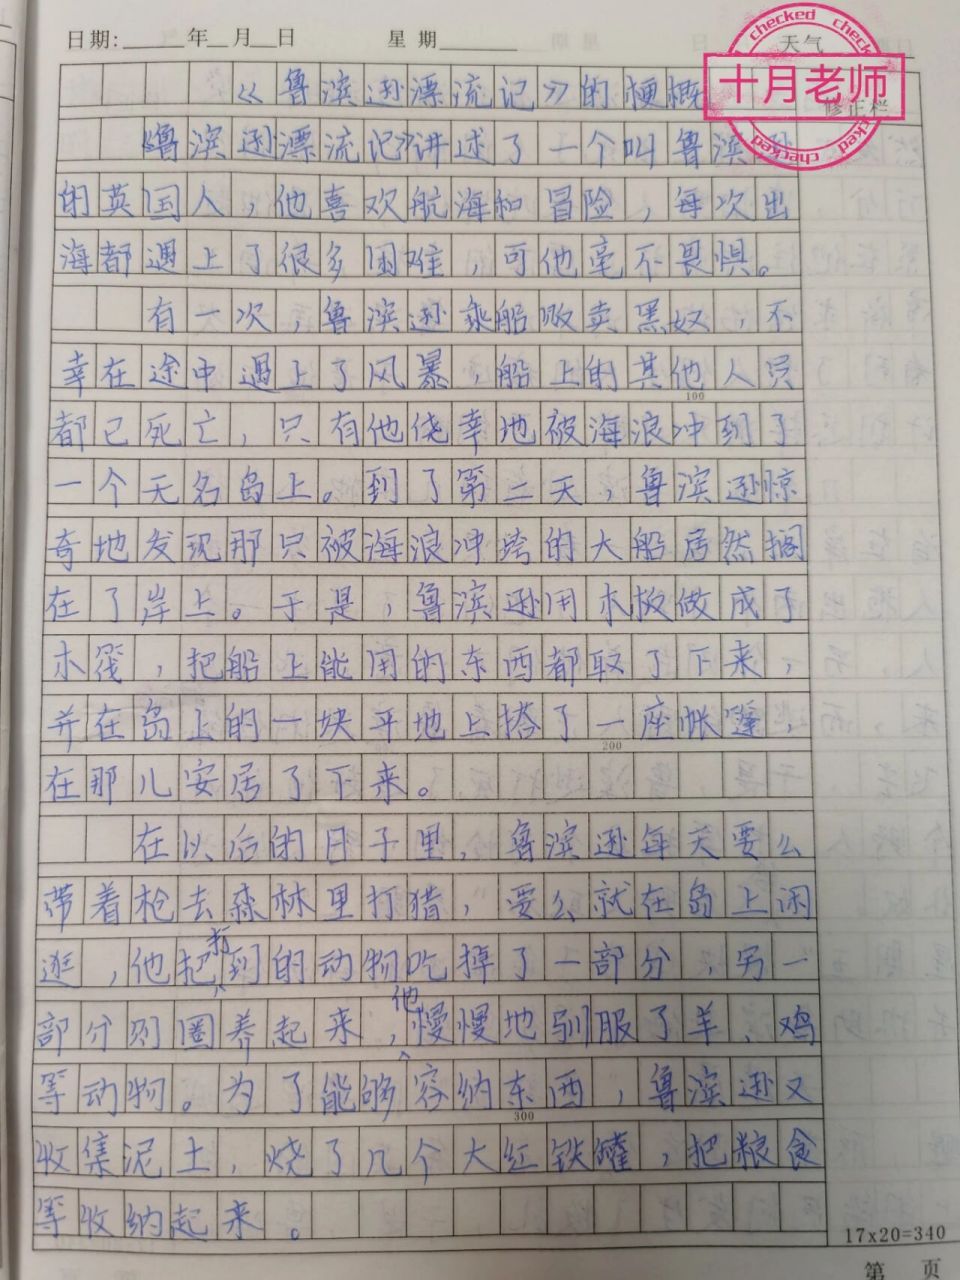 日期:____年__月__日 星期______ 天气
checked checked
十月老师
checked checked
修正栏
《鲁滨逊漂流记》的梗概
《鲁滨逊漂流记》讲述了一个叫鲁滨逊
的英国人，他喜欢航海和冒险，每次出
海都遇上了很多困难，可他毫不畏惧。
有一次，鲁滨逊乘船贩卖黑奴，不
幸在途中遇上了风暴，船上的其他人员
100
都已死亡，只有他侥幸地被海浪冲到了
一个无名岛上。到了第二天，鲁滨逊惊
奇地发现那只被海浪冲垮的大船居然搁
在了岸上。于是，鲁滨逊用木板做成了
木筏，把船上能用的东西都取了下来，
并在岛上的一块平地上搭了一座帐篷，
200
在那儿安居了下来。
在以后的日子里，鲁滨逊每天要么
带着枪去森林里打猎，要么就在岛上闲
逛，他把打到的动物吃掉了一部分，另一
部分则圈养起来，他慢慢地驯服了羊、鸡
等动物。为了能够容纳东西，鲁滨逊又
300
收集泥土，烧了几个大红铁罐，把粮食
等收纳起来。
17x20=340
第 页